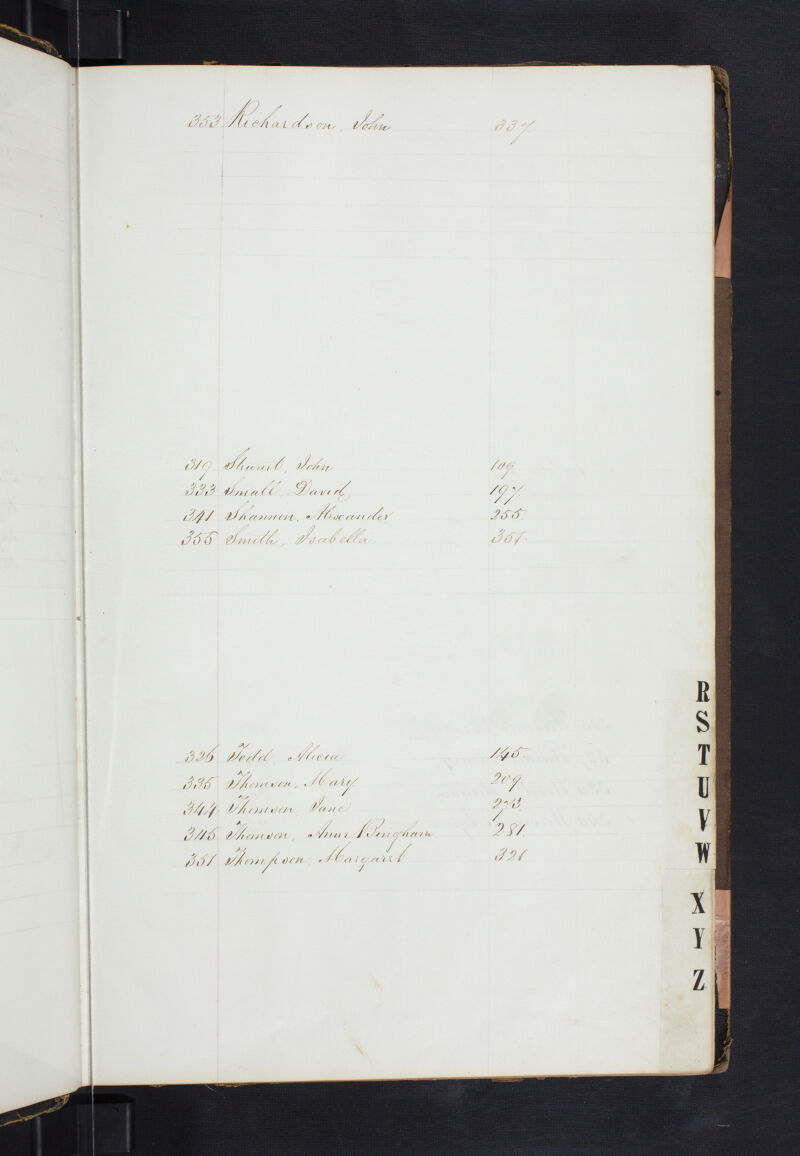 353 Richardson, John 337
319 Stewart, John 109
333 Small, David 197.
341 Shannon, Alexander 255.
355 Smith, Isabella 351.
326 Todd, Alicia 145.
335 Thomson, Mary 209.
344 Thomson, Jane 273.
345 Thomson, Anne Bingham 281.
351 Thompson, Margaret 321
R
S
T
U
V
W
X
Y
Z